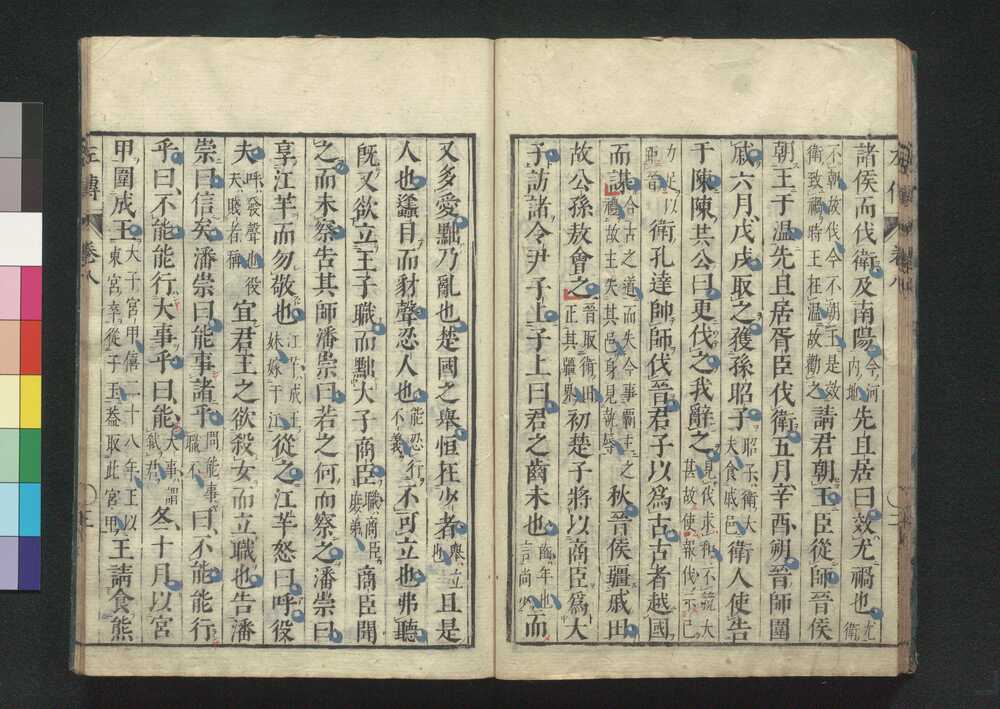 左傳 卷八 二
諸侯而伐衛及南陽今河內地先且居曰效尤禍也尤衛
不朝故伐今不朝王是效衛致禍時王在温故勸之請君朝王臣從師晉侯
朝王于温先且居胥臣伐衛五月辛酉朔晉師圍
戚六月戊戌取之獲孫昭子昭子衛大夫食戚邑衛人使告
于陳陳共公曰更伐之我辭之見伐求和不競大甚故使報伐示己
力足以距晉衛孔達帥師伐晉君子以爲古古者越國
而謀合古之道而失今事霸主之禮故主失其邑身見執辱秋晉侯疆戚田
故公孫敖會之晉取衛田正其疆界初楚子將以商臣爲大
子訪諸令尹子上子上曰君之齒未也齒年也言尚少而
又多愛黜乃亂也楚國之舉恒在少者舉立也且是
人也蠭目而豺聲忍人也能忍行不義不可立也弗聽
既又欲立王子職而黜大子商臣職商臣庶弟商臣聞
之而未察告其師潘崇曰若之何而察之潘崇曰
享江芊而勿敬也江芊成王妹嫁于江從之江芊怒曰呼役
夫呼發聲也役夫賤者稱宜君王之欲殺女而立職也告潘
崇曰信矣潘崇曰能事諸乎問能事職不曰不能能行
乎曰不能能行大事乎曰能大事謂弑君冬十月以宮
甲圍成王大子宮甲僖二十八年王以東宮卒從子玉蓋取此宮甲王請食熊
左傳 卷八 三